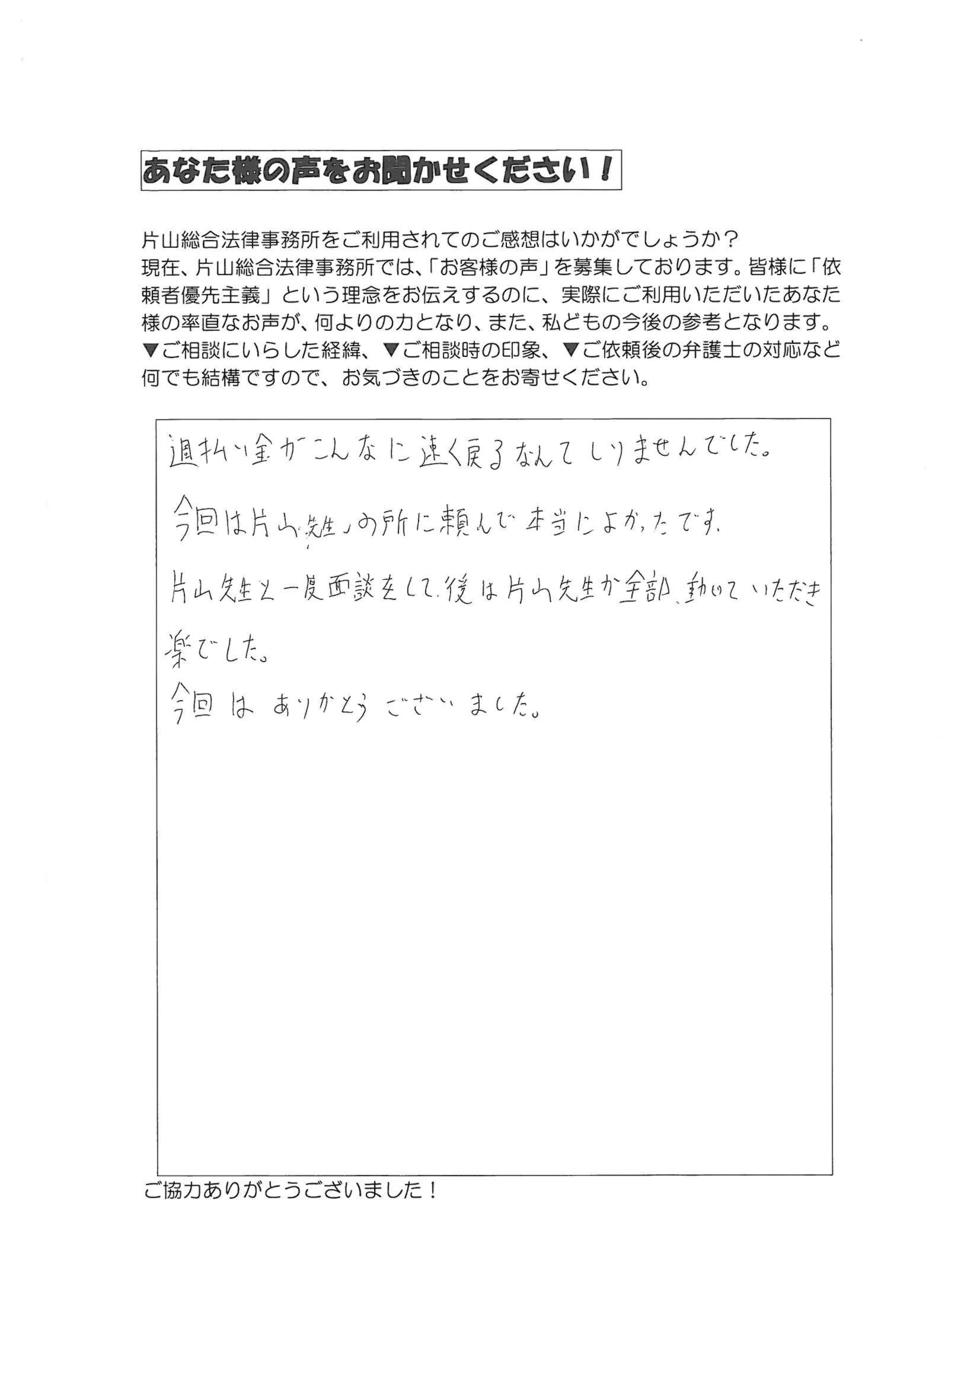 あなた様の声をお聞かせください！
片山総合法律事務所をご利用されてのご感想はいかがでしょうか？
現在、片山総合法律事務所では、「お客様の声」を募集しております。皆様に「依
頼者優先主義」という理念をお伝えするのに、実際にご利用いただいたあなた
様の率直なお声が、何よりの力となり、また、私どもの今後の参考となります。
▼ご相談にいらした経緯、▼ご相談時の印象、▼ご依頼後の弁護士の対応など
何でも結構ですので、お気づきのことをお寄せください。
過払い金がこんなに速く戻るなんてしりませんでした。
今回は片山先生の所に頼んで本当によかったです.
片山先生と一度面談をして、後は片山先生が全部、動いていただき
楽でした。
今回は ありがとう ございました。
ご協力ありがとうございました！